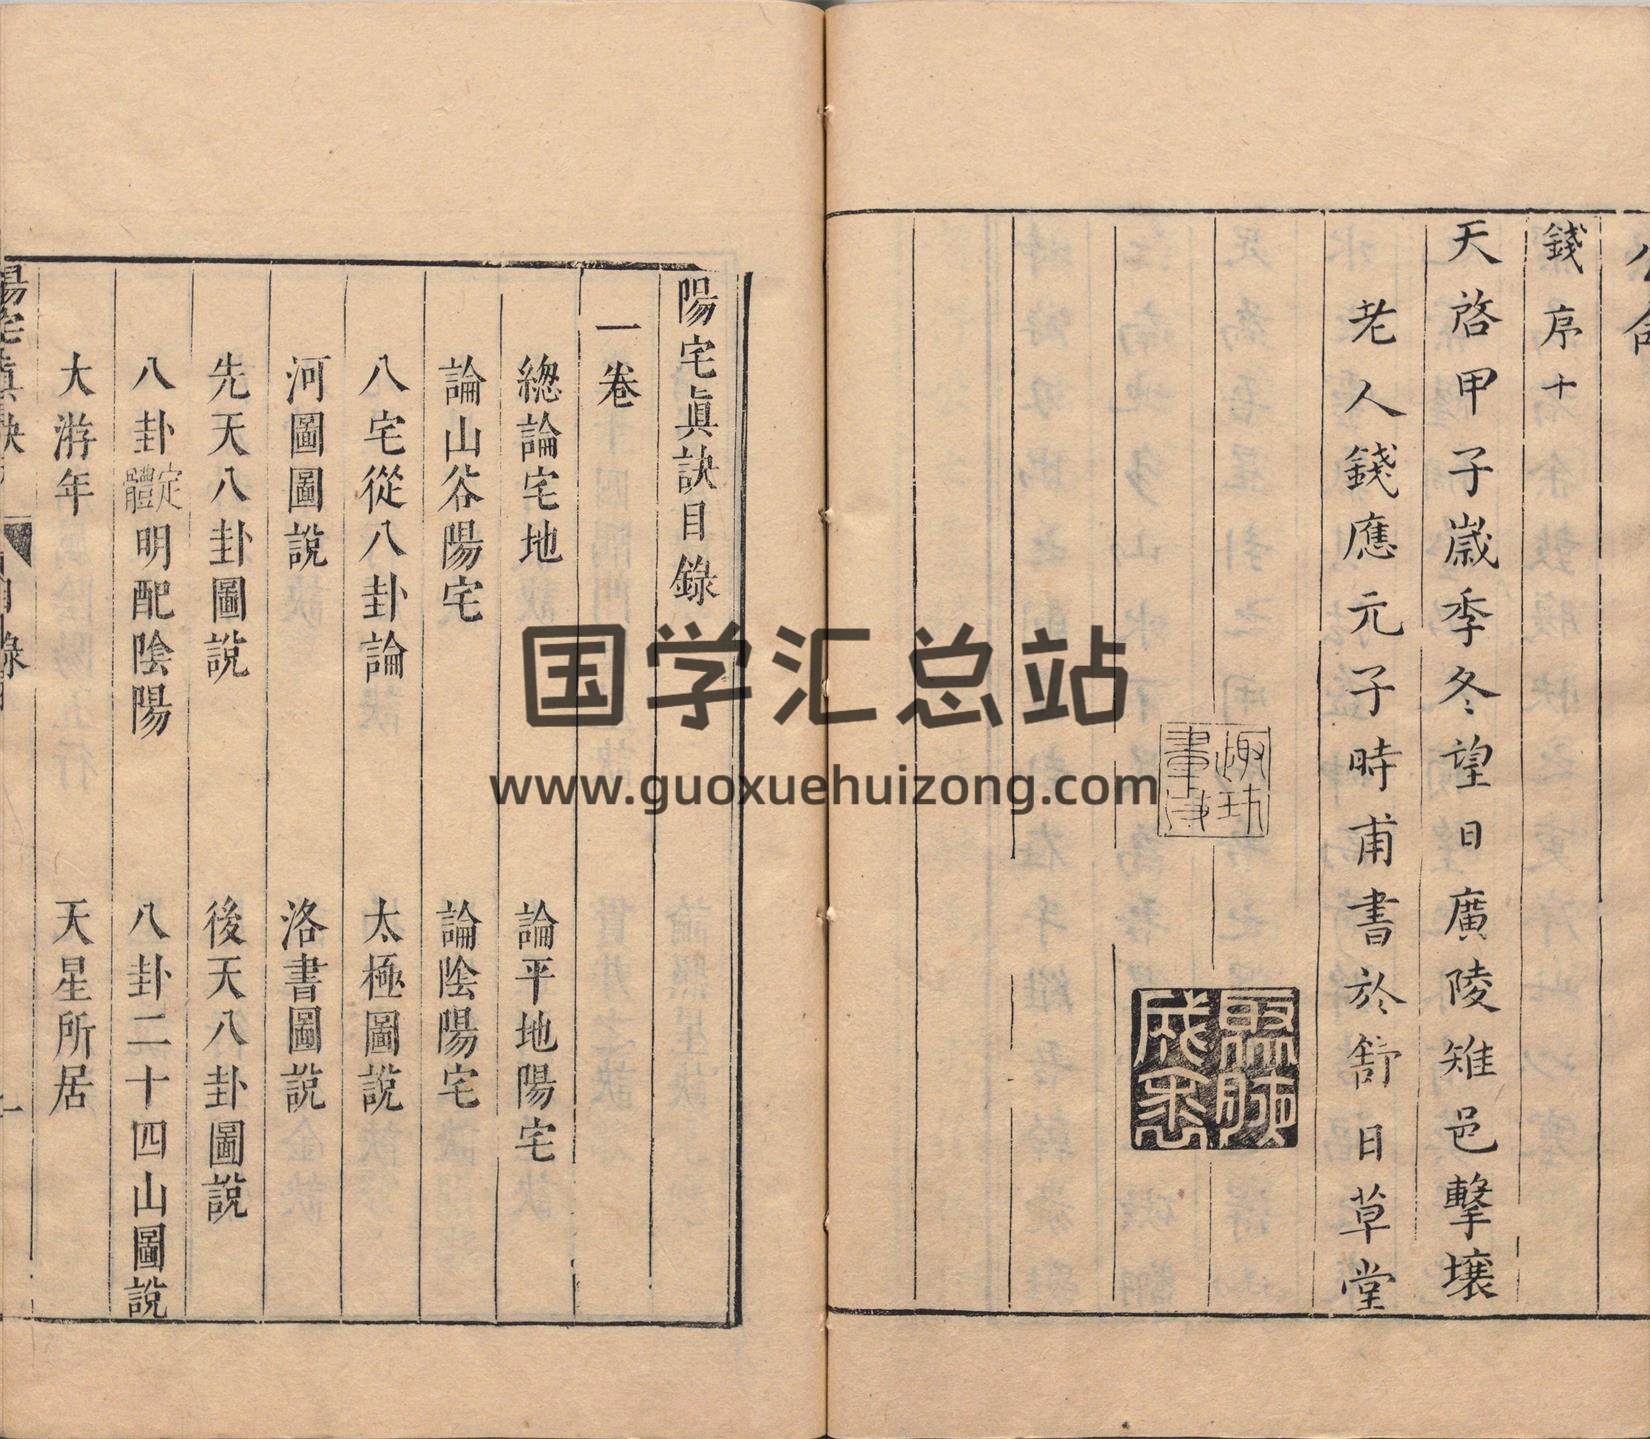 錢序十
天啓甲子嵗季冬望日廣陵雉邑擊壤
老人錢應元子時甫書於舒日草堂
陽宅眞訣目錄
一卷
緫論宅地
論平地陽宅
論山谷陽宅
論陰陽宅
八宅從八卦論
太極圖說
河圖圖說
洛書圖說
先天八卦圖說
後天八卦圖說
八卦定體明配陰陽
八卦二十四山圖說
大游年
天星所居
国学汇总站
www.guoxuehuizong.com